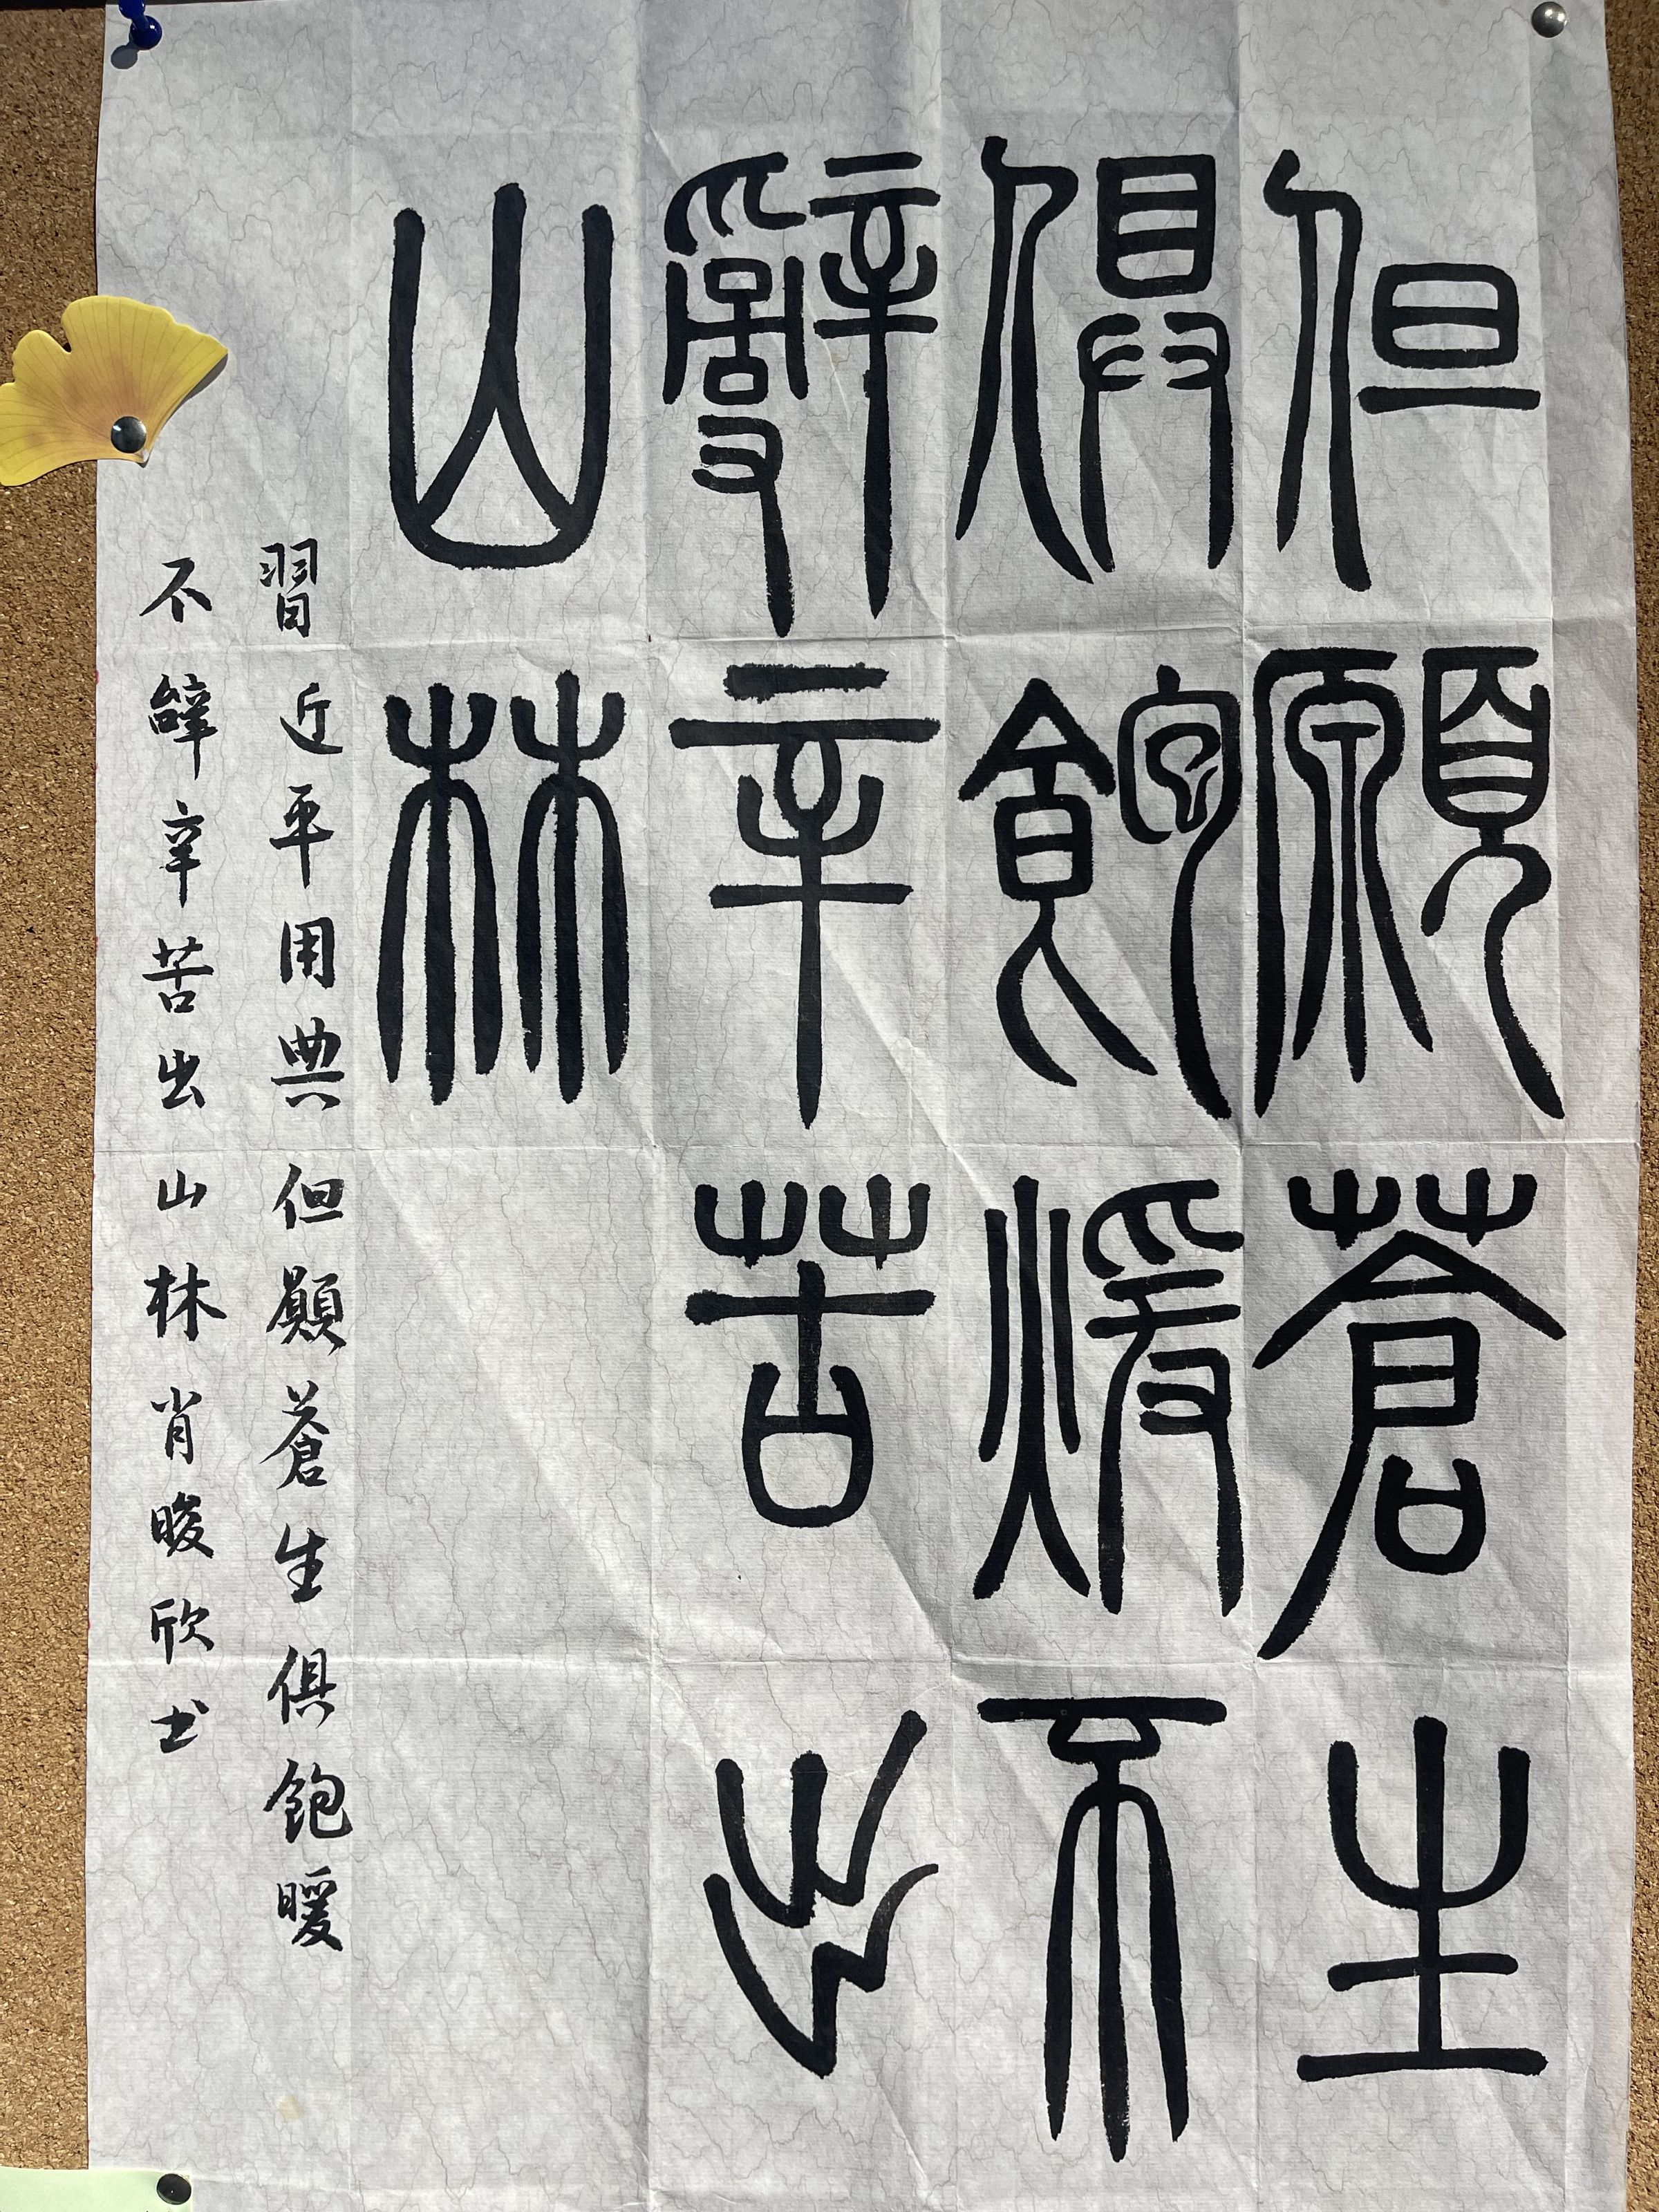 但願蒼生
俱飽煖不
辭辛苦出
山林
習近平用典但願蒼生俱飽暖
不辭辛苦出山林肖晙欣书